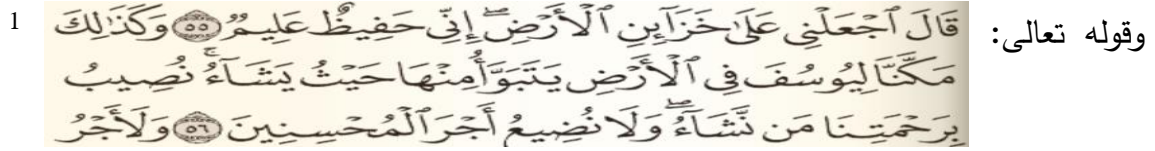 وقوله تعالى: قَالَ ٱجۡعَلۡنِي عَلَىٰ خَزَآئِنِ ٱلۡأَرۡضِۖ إِنِّي حَفِيظٌ عَلِيمٞ ٥٥ وَكَذَٰلِكَ 1
مَكَّنَّا لِيُوسُفَ فِي ٱلۡأَرۡضِ يَتَبَوَّأُ مِنۡهَا حَيۡثُ يَشَآءُۚ نُصِيبُ
بِرَحۡمَتِنَا مَن نَّشَآءُۖ وَلَا نُضِيعُ أَجۡرَ ٱلۡمُحۡسِنِينَ ٥٦ وَلَأَجۡرُ